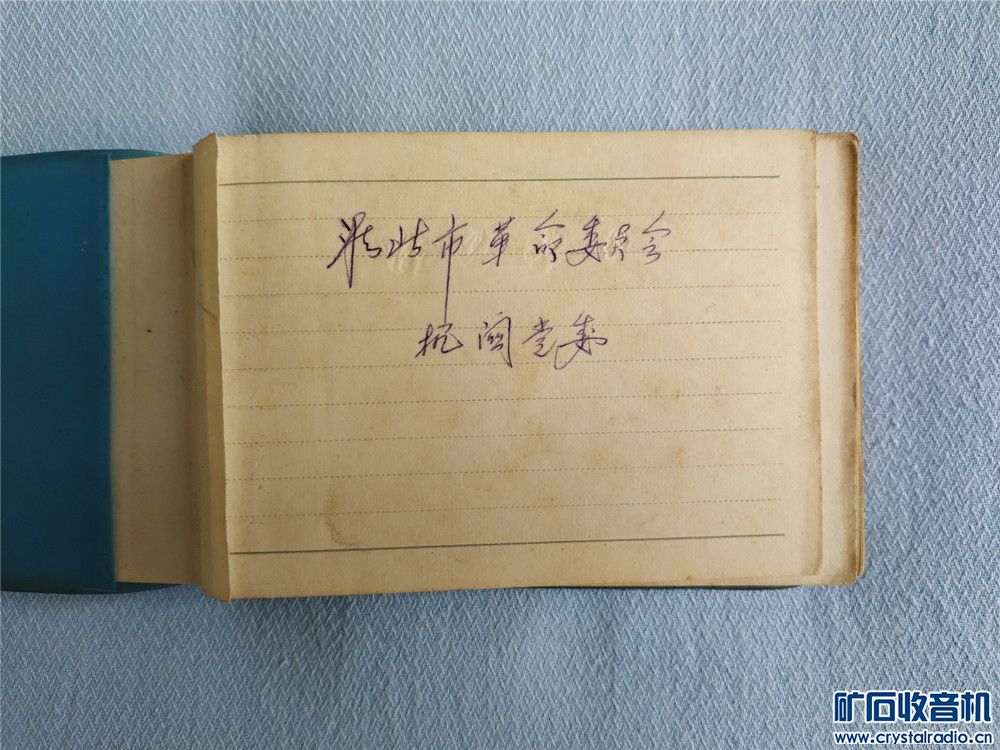 淮北市革命委员会
机关党委
矿石收音机
www.crystalradio.cn